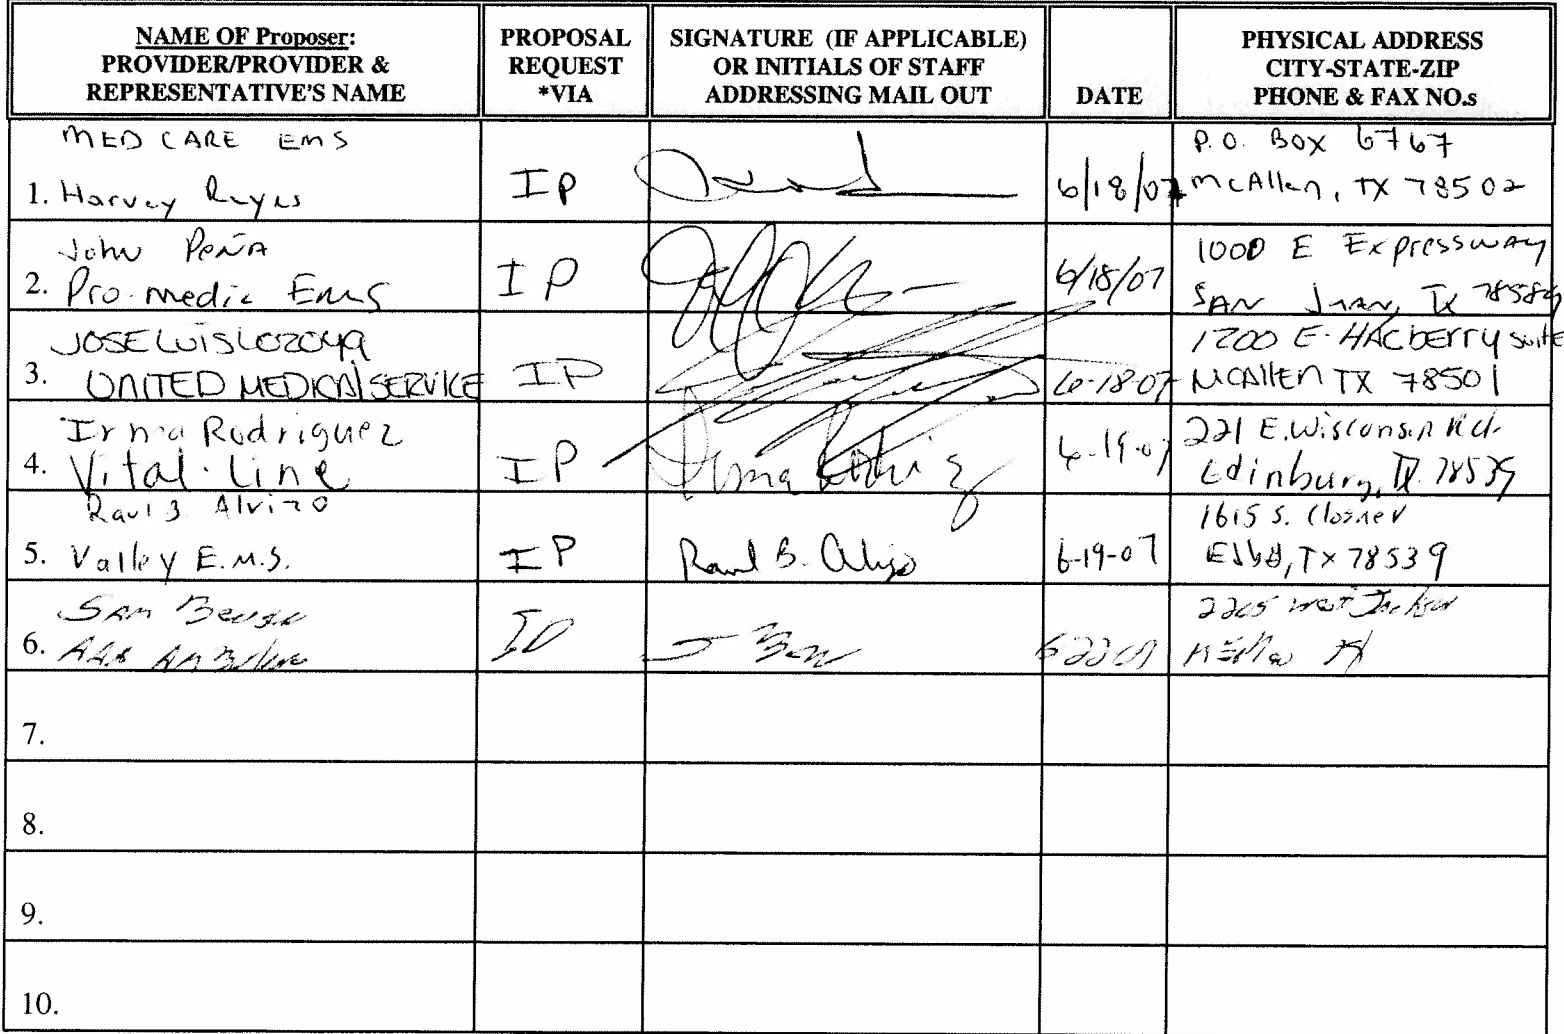 NAME OF Proposer:
PROVIDER/PROVIDER &
REPRESENTATIVE'S NAME
PROPOSAL
REQUEST
*VIA
SIGNATURE (IF APPLICABLE)
OR INITIALS OF STAFF
ADDRESSING MAIL OUT
DATE
PHYSICAL ADDRESS
CITY-STATE-ZIP
PHONE & FAX NO.s
MED CARE EMS
1. Harvey Reyes
IP
6/18/07
P.O. BOX 6767
McAllen, TX 78502
John PEÑA
2. Pro-medic EMS
IP
6/18/07
1000 E Expressway
SAN JUAN, TX 78589
JOSE LUIS LOZOYA
3. UNITED MEDICAL SERVICE
IP
6-18-07
1200 E. HACBERRY suite
MCAllEN TX 78501
Irma Rodriguez
4. Vital-Line
IP
Irma
6-19-07
221 E. Wisconsin Rd.
Edinburg, TX 78539
Raul B Alvizo
5. Valley E.M.S.
IP
Raul B.
6-19-07
1615 S. Closner
Edbg, TX 78539
SAM
6.
IP
62207
2205 West Jackson
7.
8.
9.
10.